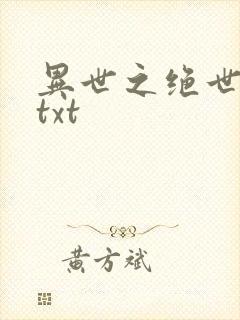 異世之绝世
txt
黄方斌